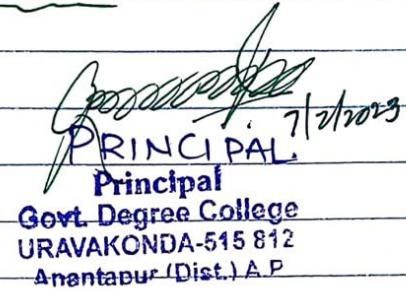 7/2/2023
PRINCIPAL.
Principal
Govt. Degree College
URAVAKONDA-515 812
Anantapur (Dist.) A.P